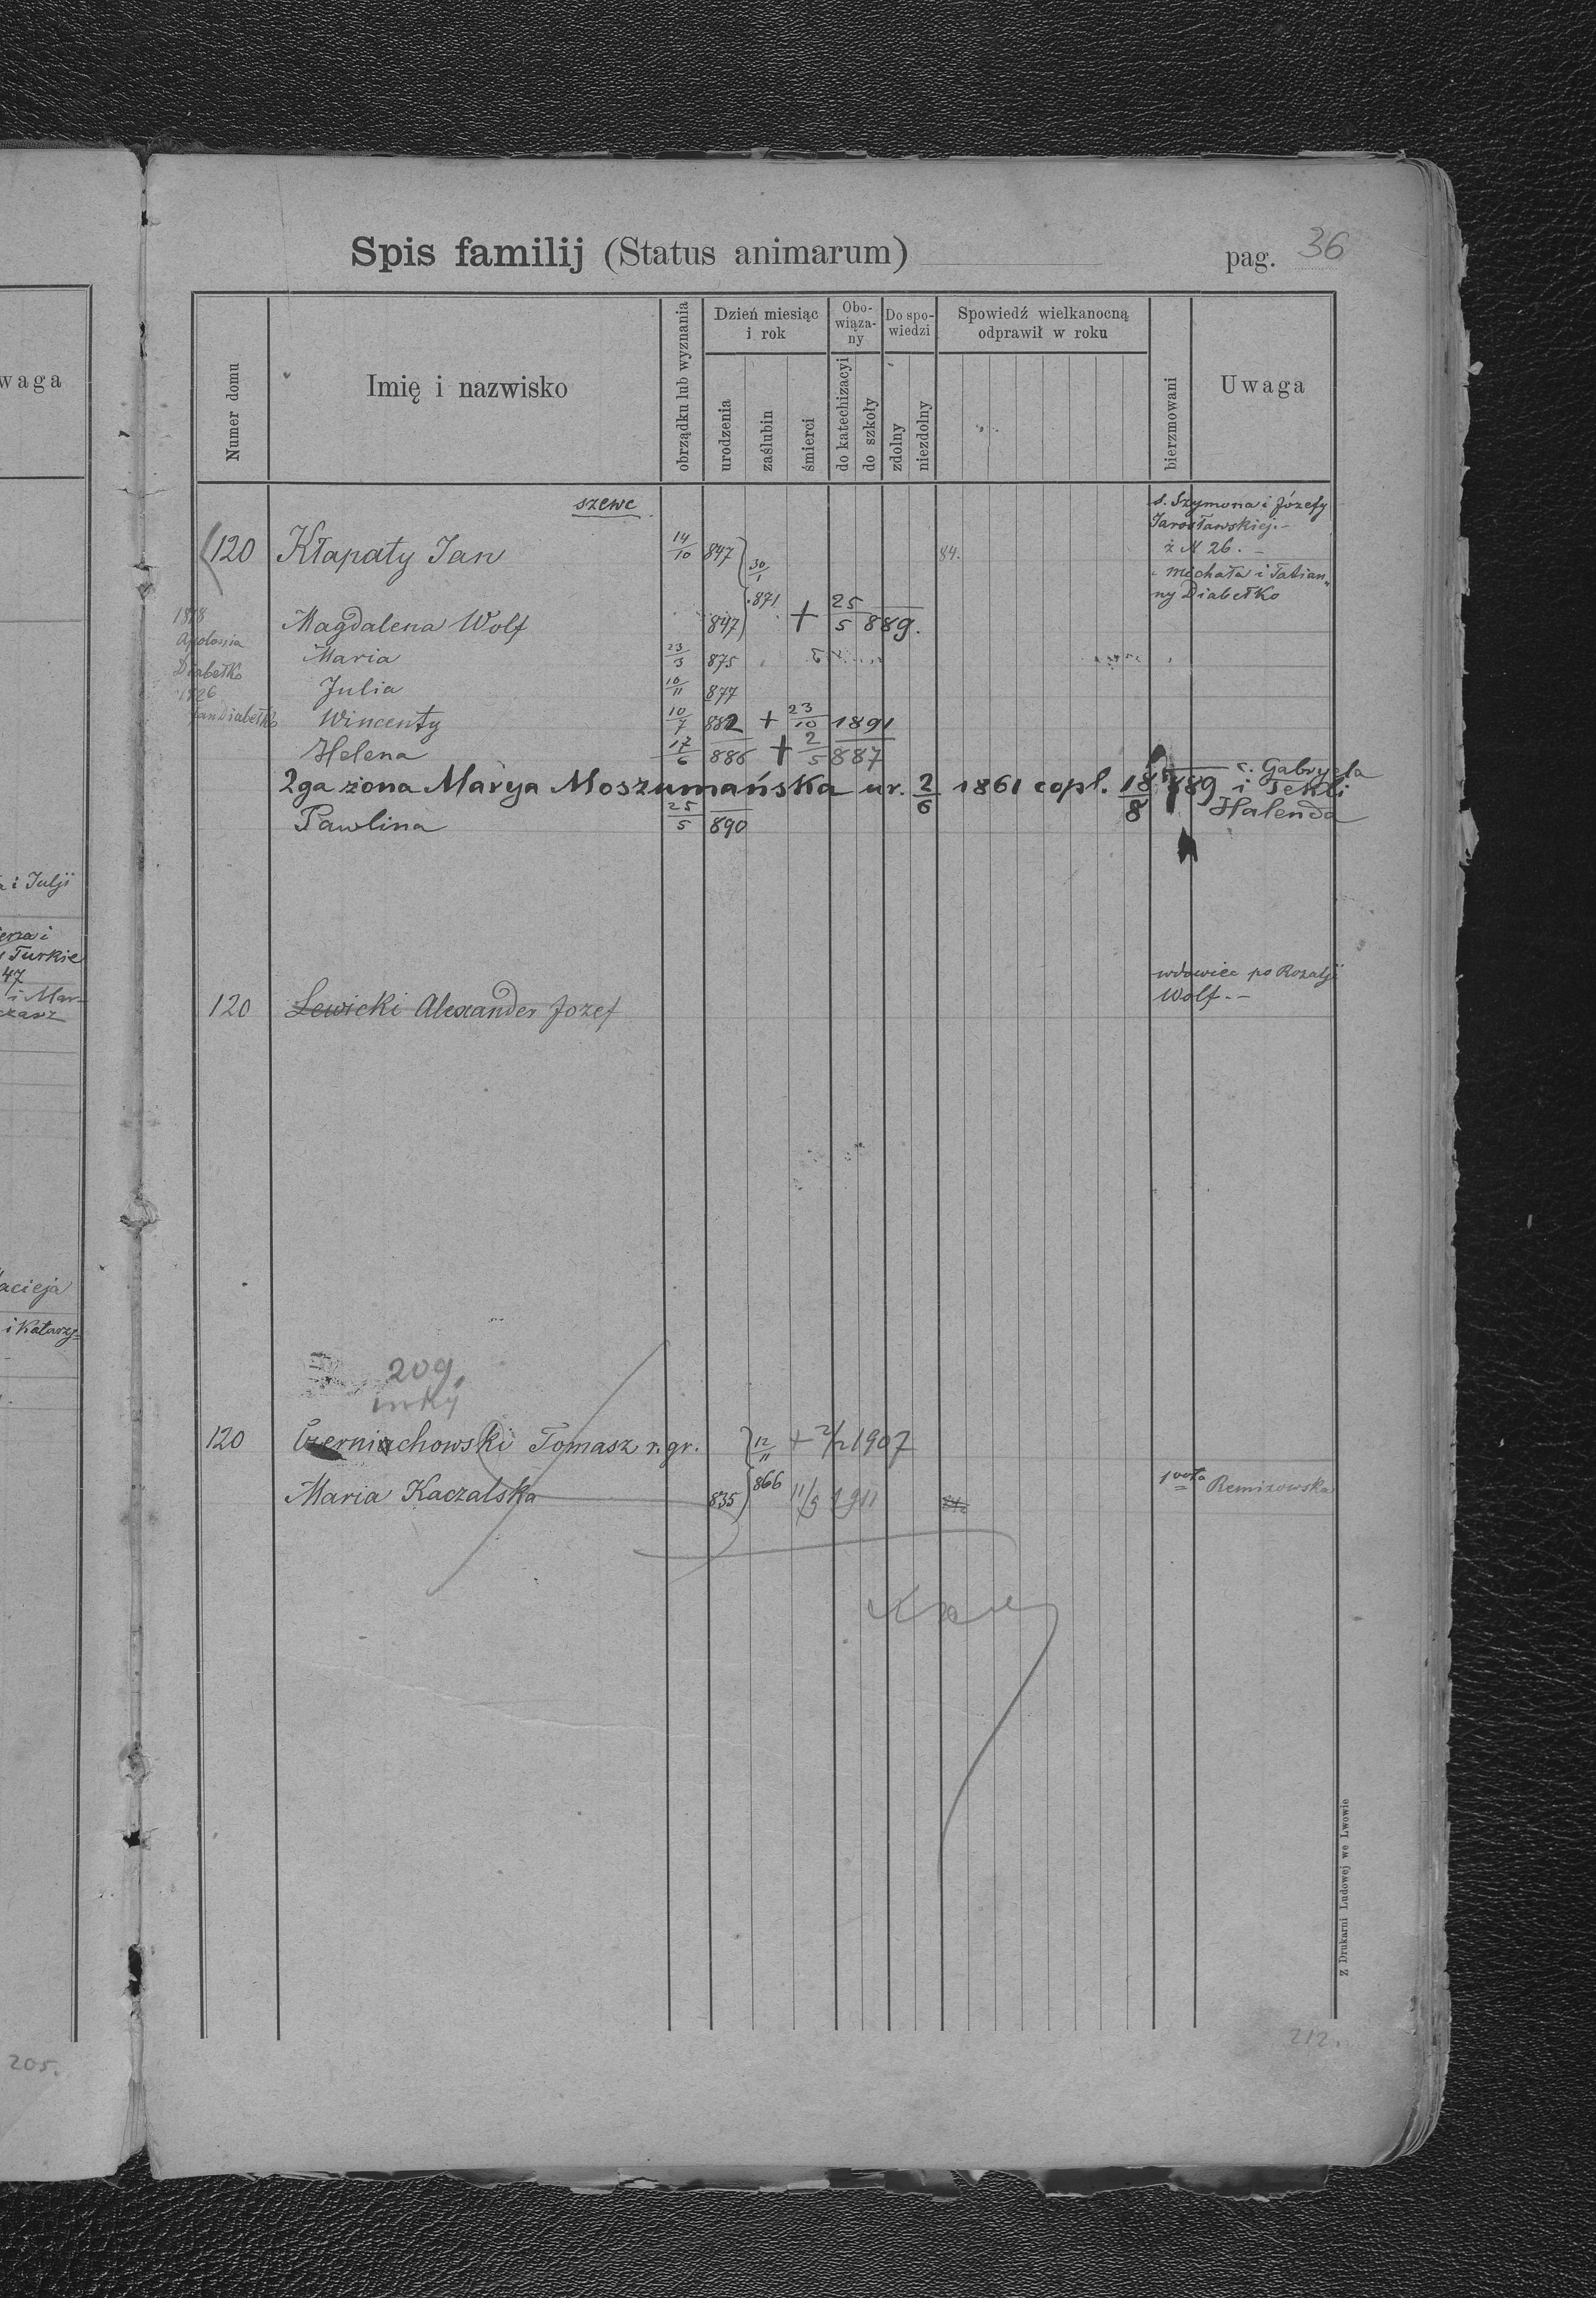 waga
a i Julji
i Turkie
47
i Mar-
acieja
i Katarzy-
205.
Spis familij (Status animarum)
pag. 36
Numer domu
Imię i nazwisko
obrządku lub wyznania
Dzień miesiąc i rok
urodzenia
zaślubin
śmierci
Obo-wiąza-ny
do katechizacyi
do szkoły
Do spo-wiedzi
zdolny
niezdolny
Spowiedź wielkanocną odprawił w roku
bierzmowani
Uwaga
szewc
s. Szymona i Józefy
Jarosławskiej.-
120 Kłapaty Jan 14/10 847 30/1 871 84. ż N 26. -
Michała i Tatian-
ny Diabełko
Magdalena Wolf 847 + 25/5 889.
1818
Apolonia
Diabełko
1826
Jan Diabełko
Maria 23/3 875
Julia 16/11 877
Wincenty 10/7 882 + 23/10 1891
Helena 17/6 886 + 2/5 887
2ga żona Marya Moszumańska ur. 2/6 1861 copl. 18/8 889 c. Gabryela
i Tekli
Halenda
Pawlina 25/5 890
wdowiec po Rozalji
Wolf.-
120 Lewicki Alexander Jozef
209.
120 Czerniachowski Tomasz r. gr. 12/11 866 + 2/2 1907
Maria Kaczalska 835 11/9 1911 1voto Remizowska
Z Drukarni Ludowej we Lwowie
212.